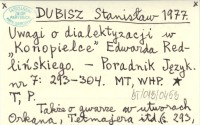 DUBISZ Stanisław 1977.
Uwagi o dialektyzacji w
„Konopielce" Edwarda Red-
lińskiego. – Poradnik Język.
nr 7: 293–304. MT, WHP. *
T, P.
Także o gwarze w utworach
Orkana, Tetmajera itd. (s. 293,